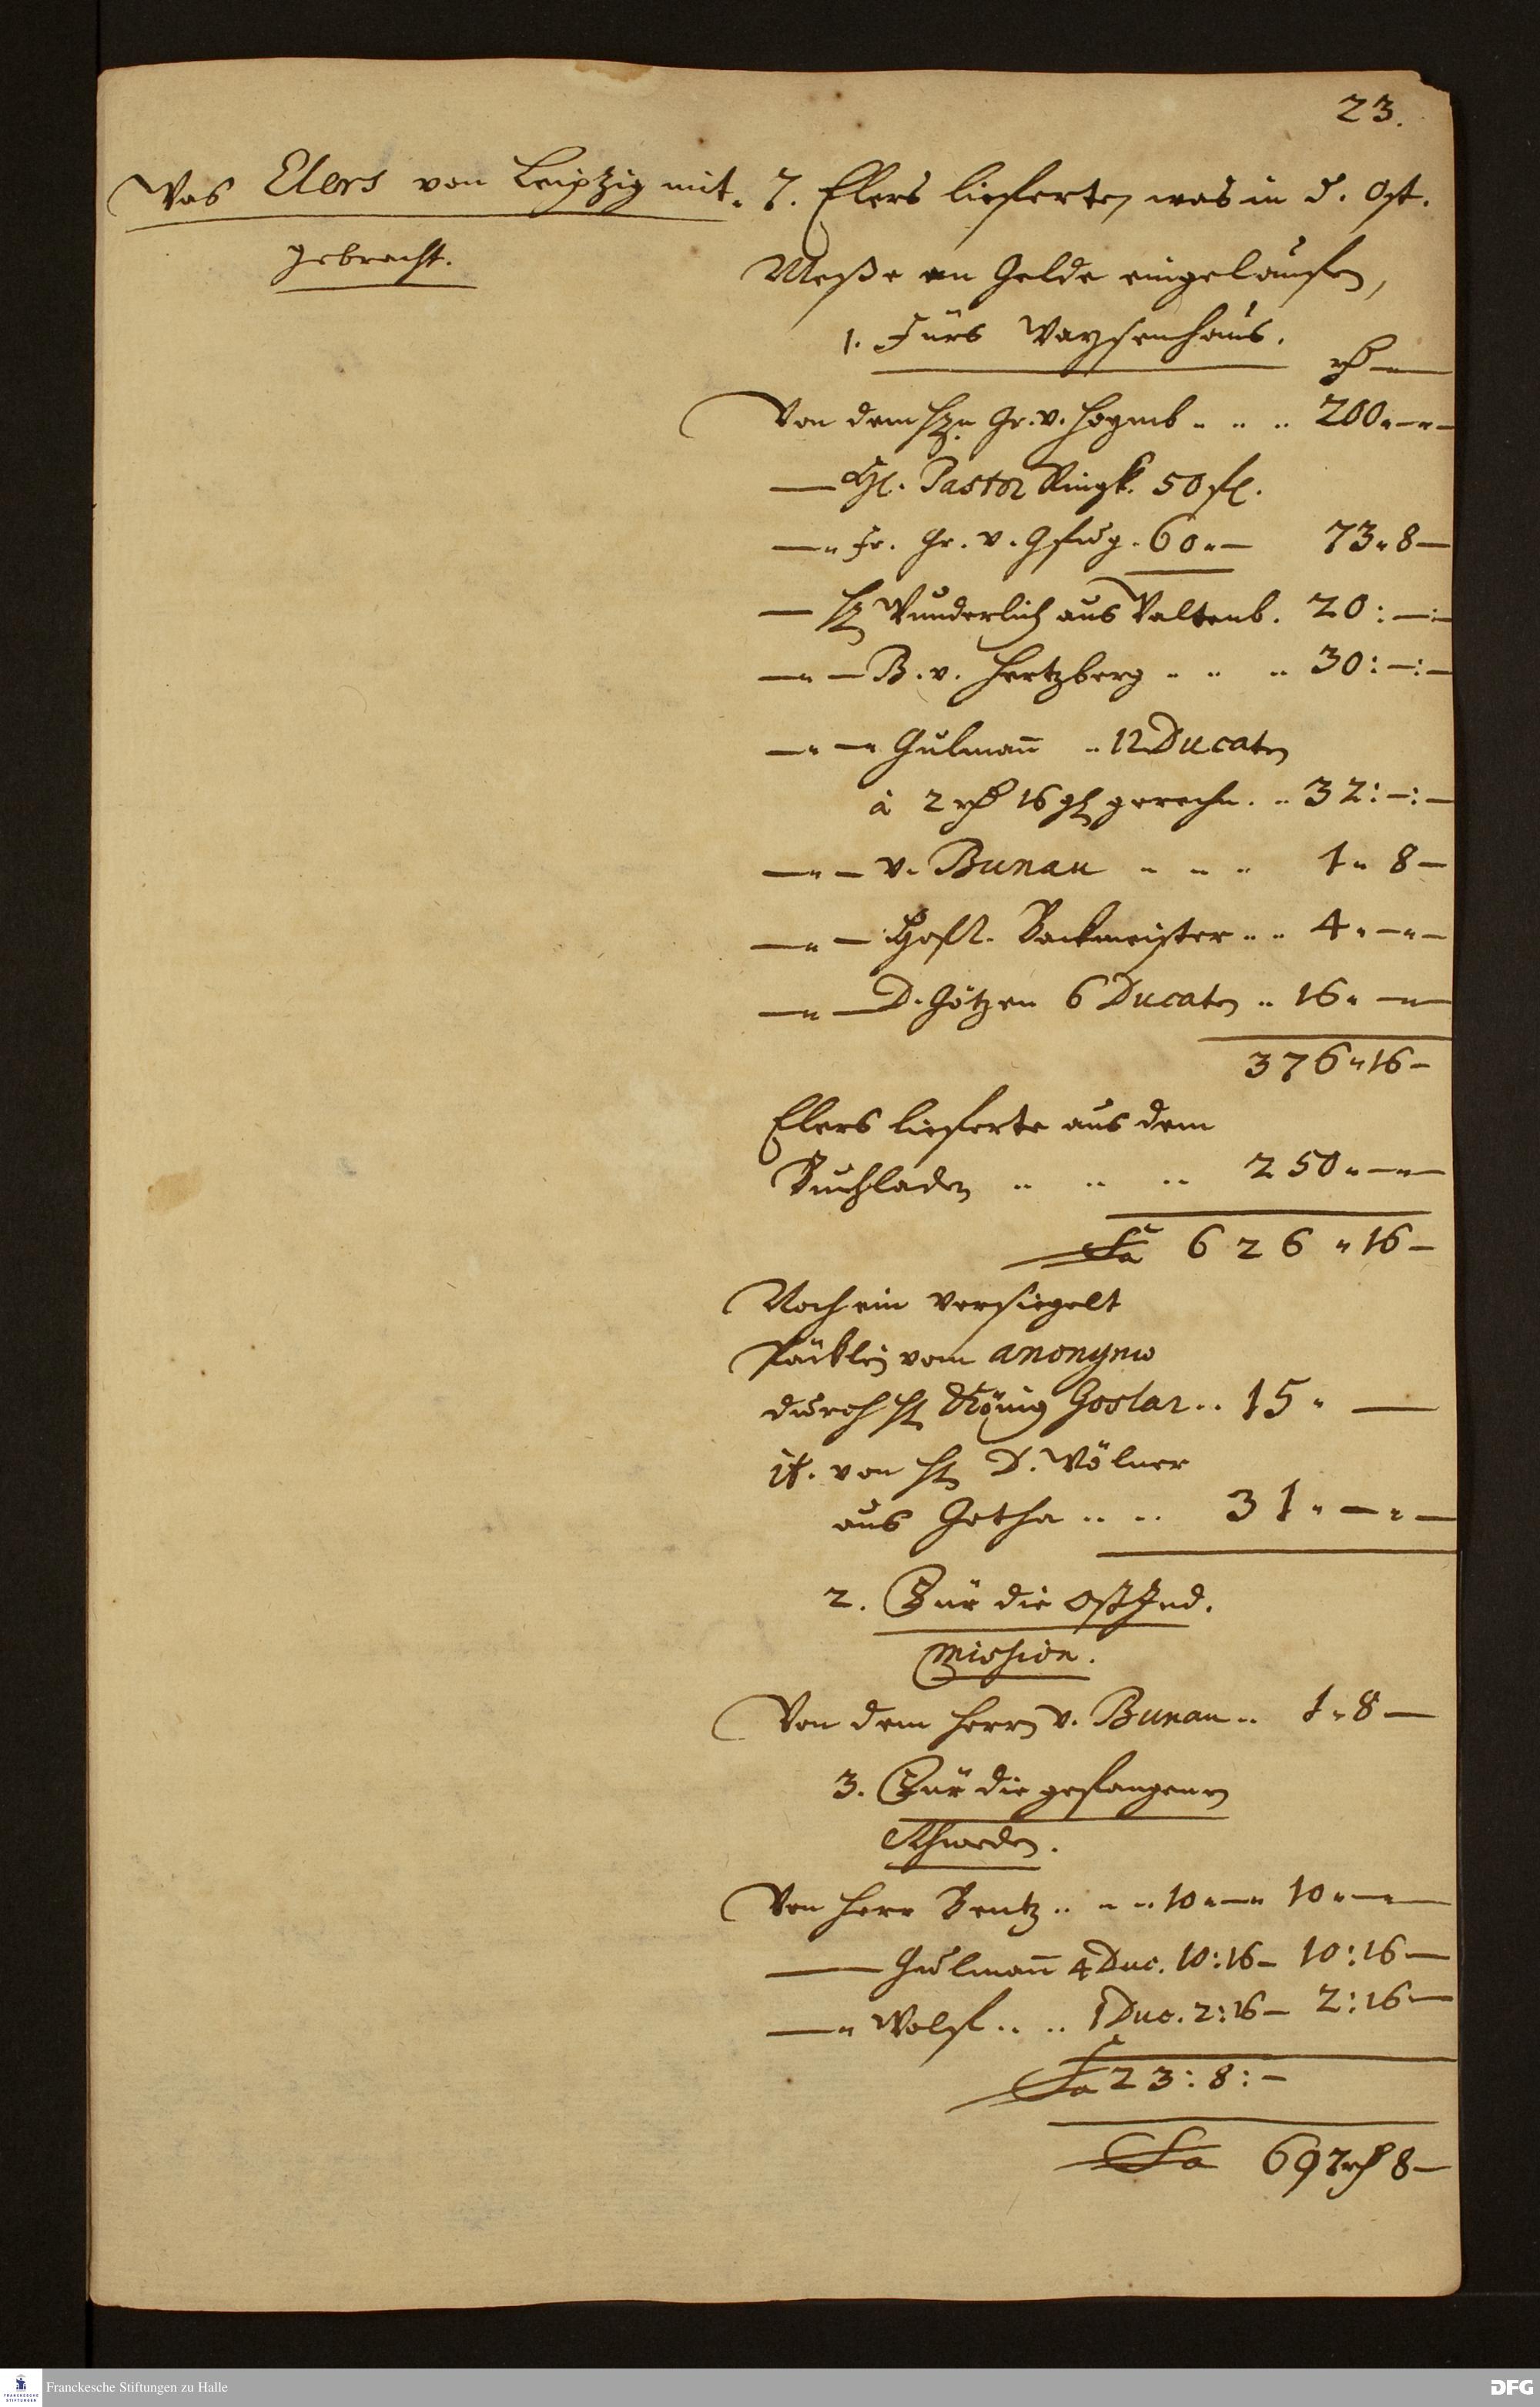 23.
Was Elers von Leipzig mit-
gebracht.
7. Elers lieferte, was in d. Ost.
Meße an Gelde eingelauffen,
1. Fürs Waysenhaus.
rth —
Von dem H. Gr. v. Hogmb - - - 200 " — " —
— H. Pastor Ringk. 50 fl.
— " Fr. Gr. v. 60 " — 73 " 8 —
— H. Wunderlich aus Valtenb. 20 : — : —
— " — B. v. Hertzberg - - - 30 : — : —
— " — Gulman̄ " 12 Ducaten
à 2 rth 16 gl gerechn. " 32 : — : —
— " — v. Bunau - - - 1 " 8 —
— " — Hofr. Backmeister " " 4 " — " —
— " — D. Götzen 6 Ducaten " 16 " — " —
376 " 16 —
Elers lieferte aus dem
Buchladen " " " 250 " — " —
Sa 626 " 16 —
Noch ein versiegelt
Päcklein vom anonymo
durch H. König Goslar " 15 " —
it. von H. D. Wölner
aus Gotha " " 31 " — " —
2. Für die OstInd.
Mission.
Von dem Herrn v. Bunau " 1 " 8 —
3. Für die gefangenen
Schweden.
Von Herr Bentz " " " 10 " — " 10 " — " —
— Gulman̄ 4 Duc. 10 : 16 — 10 : 16 —
— " Wolff " " 1 Duc. 2 : 16 — 2 : 16 —
Sa 23 : 8 : —
Sa 697 rth 8 —
Franckesche Stiftungen zu Halle
DFG